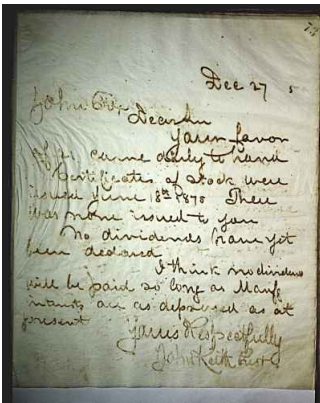 Dec 27 5
John
Dear Sir
Your favor
came duly to hand
Certificates of Stock were
issued June 18th 1875 There
was none issued to you
No dividends have yet
been declared
I think no dividend
will be paid so long as Manf
are as depressed as at
present
Yours Respectfully
John Keith